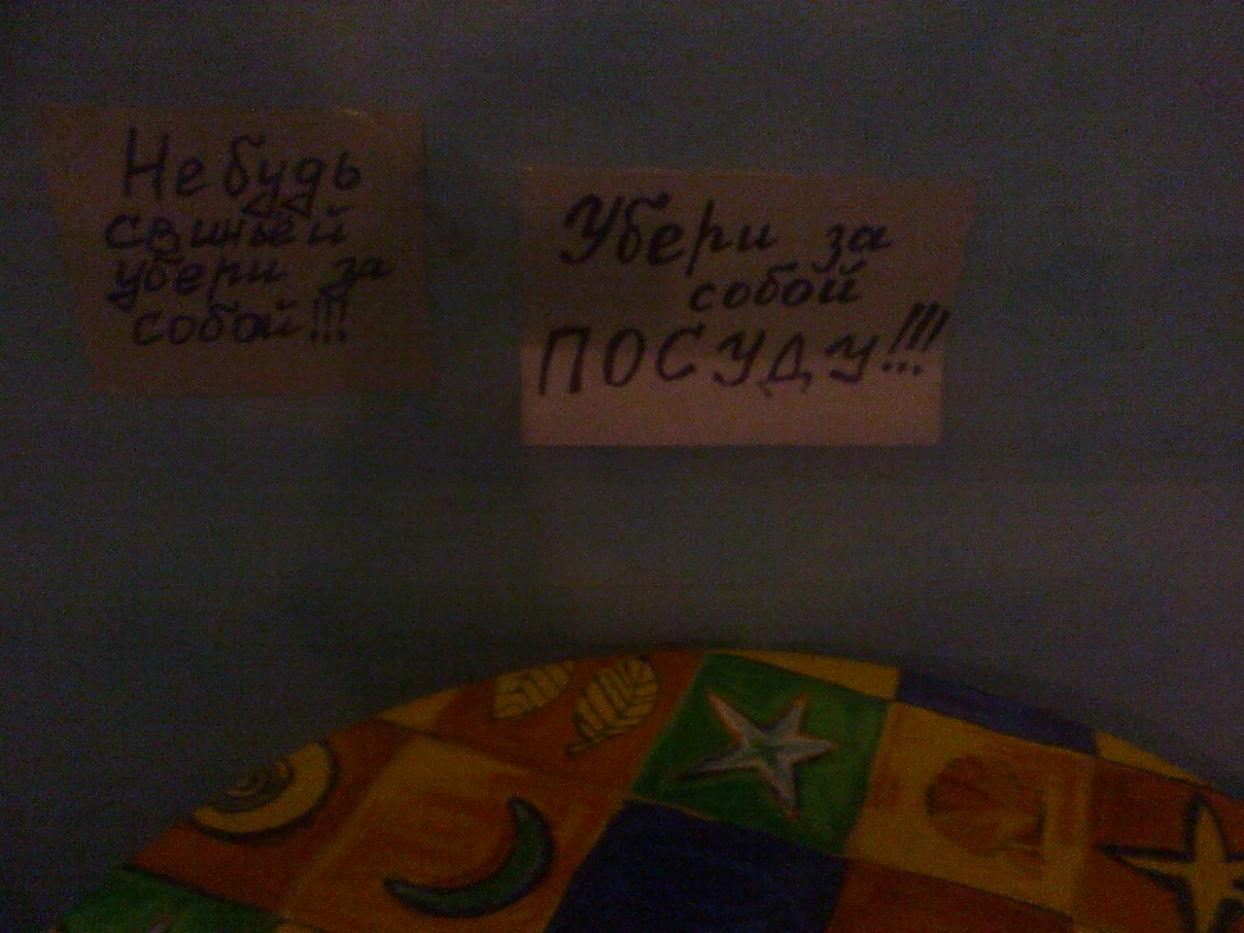 Не будь
свиньёй
убери за
собой!!!
Убери за
собой
ПОСУДУ!!!